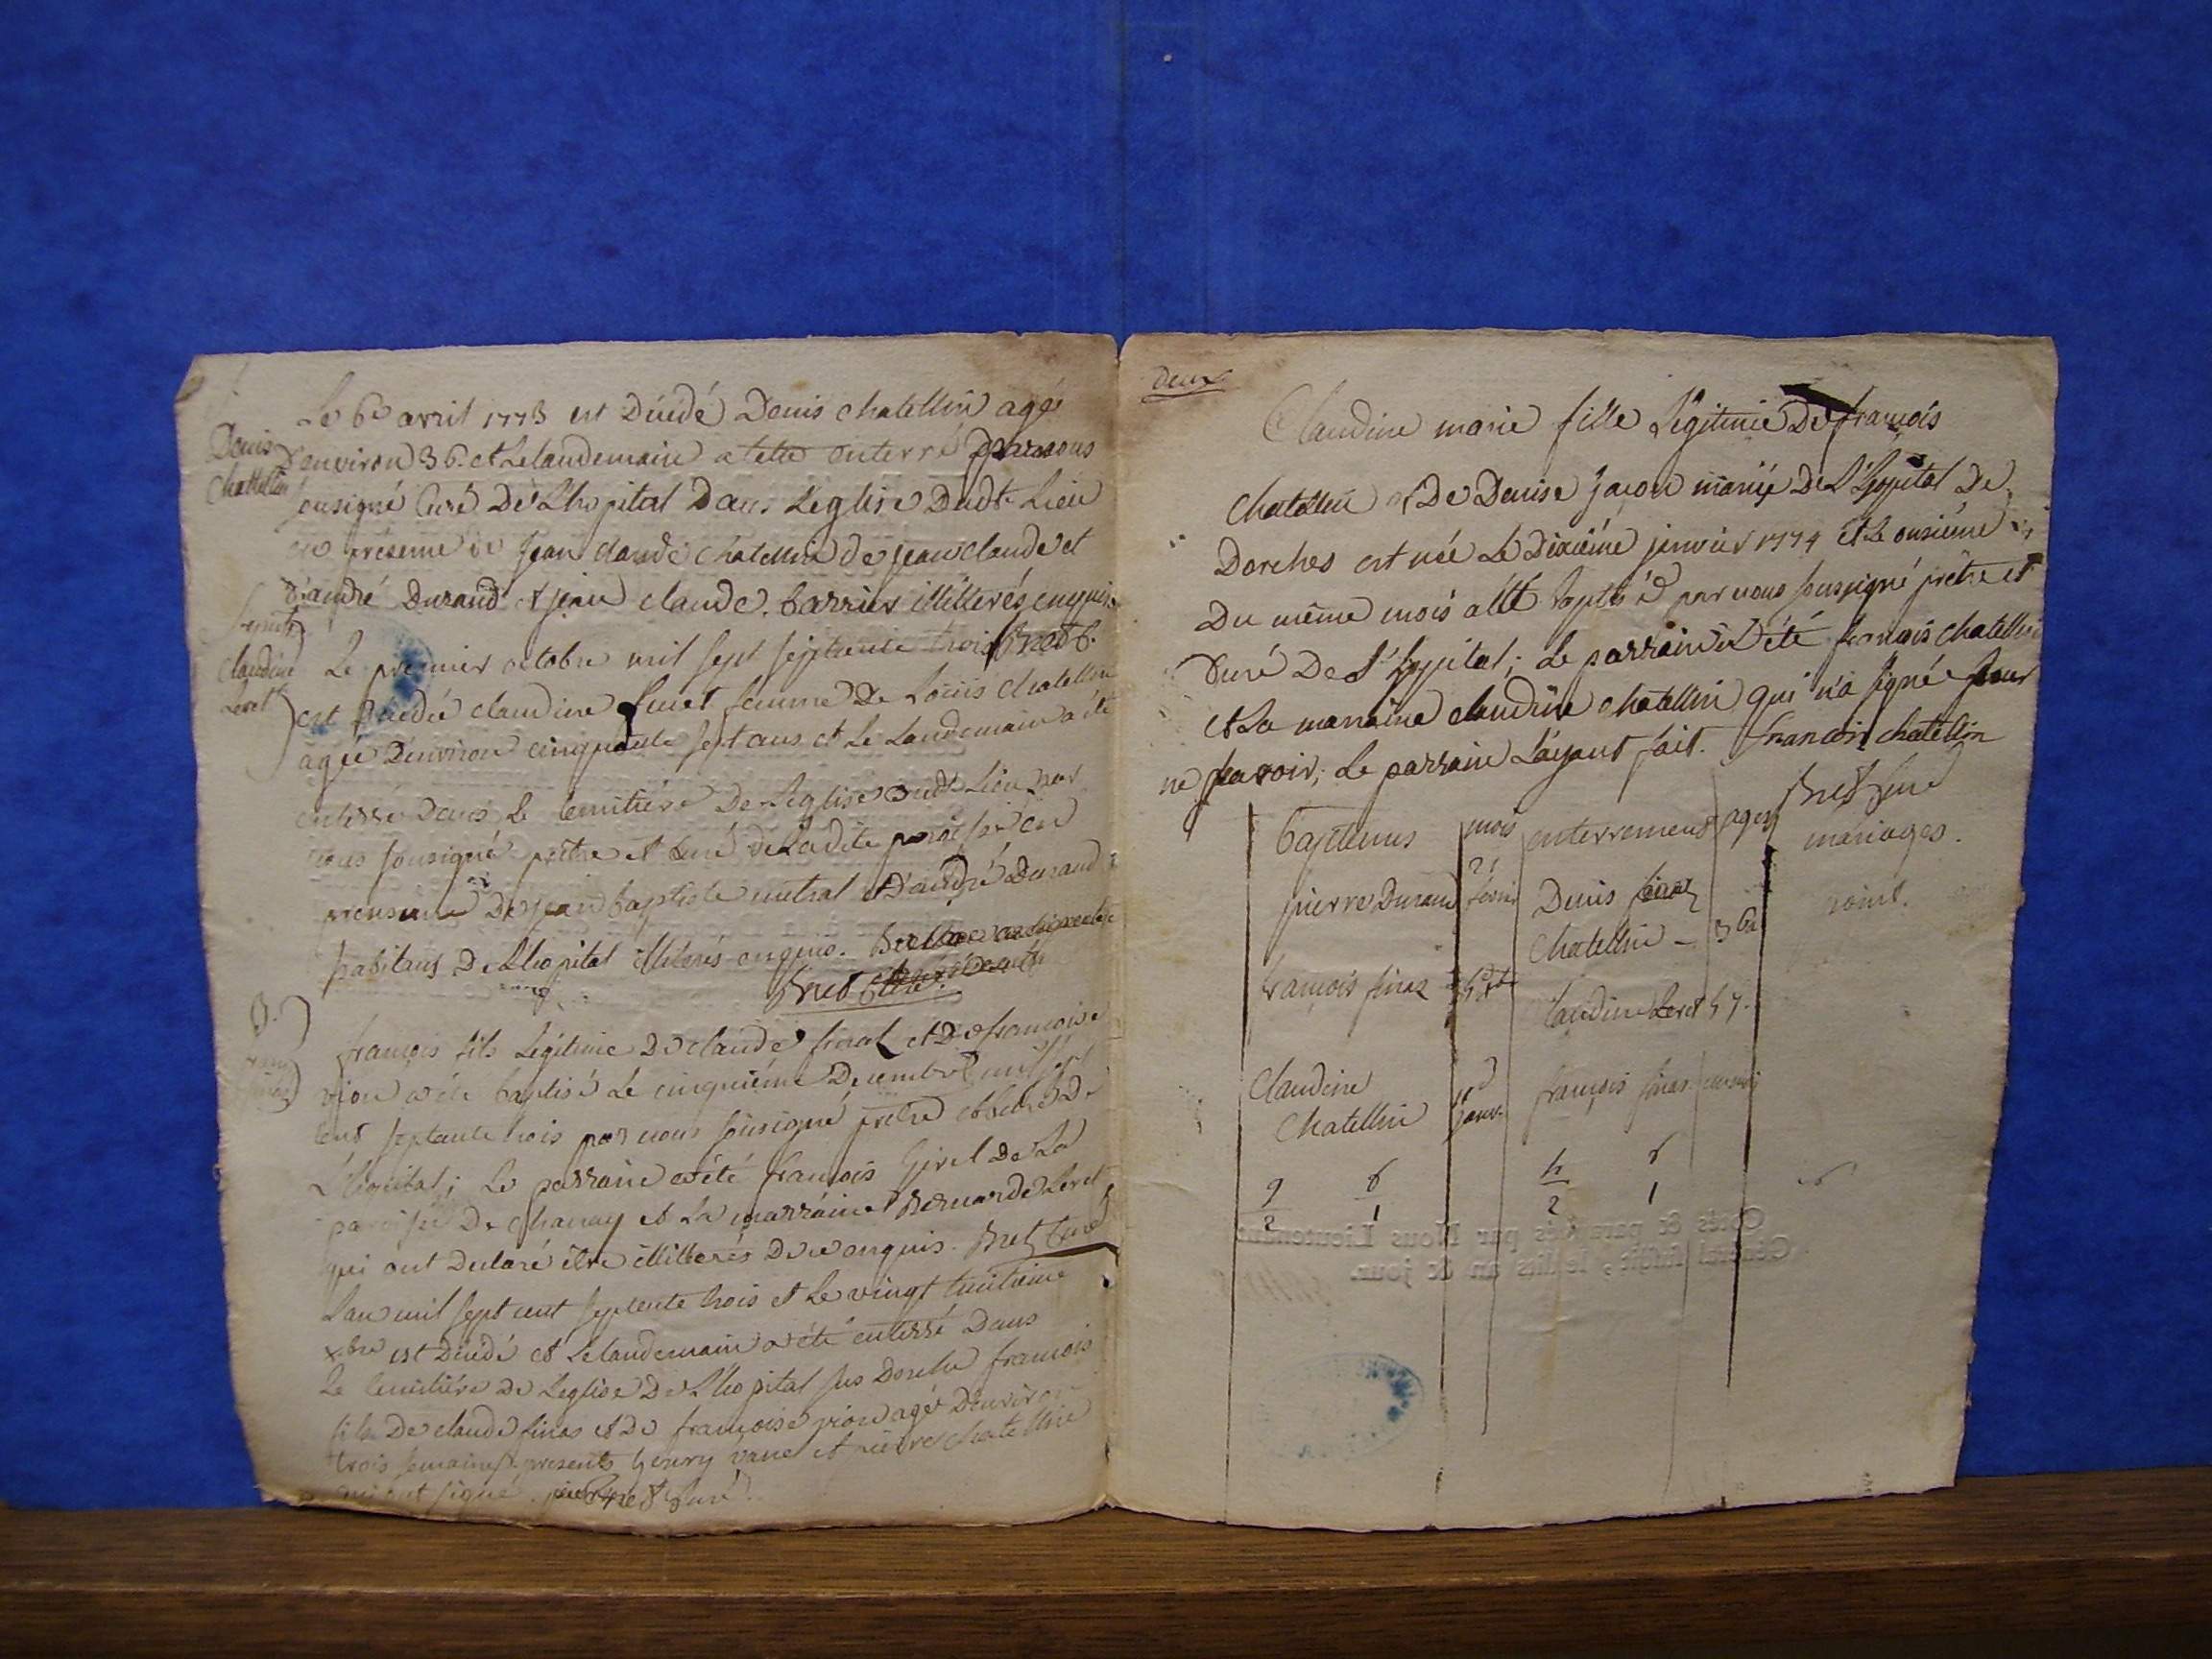 Le 6e avril 1773 est décédé Denis chatellin agé
Denis
Chatellin
d'environ 36. et Lelandemain a été enterré par nous
sousigné Curé De Lhopital Dans Leglise Dudt. Lieu
en présence de Jean claude chatellin de jean claude et
d'andré Durand et jean claude barrier illiterés enquis
Le premier octobre mil sept septante trois Bret C.
Claudine
Leret
est décédée claudine Leret femme De Loüis chatellin
agée d'environ cinquante sept ans et Le Landemain a été
enterré dans Le Cemitiére De Leglise dudt Lieu par
nous sousigné prêtre et curé deLadite paroisse en
presence De jean baptiste mutral et d'andré Durand
habitans De Lhopital illiterés enquis.
Bret
B.
françois fils Légitime De claude finaz et De françoise
pion a été baptisé Le cinquiéme Decembre mil sept
cent septante trois par nous sousigné prêtre et Curé De
L'hopital; Le parrain a été françois Girel De La
paroisse De Chanay et La marraine Bernarde Leret
qui ont declaré être illiterés De ce enquis. Bret Curé
Lan mil sept cent septente trois et Le vingt huitieme
xbre est décédé et Lelandemain a été enterré Dans
Le Cemitiére De Leglise De Lhopital sus Dorche françois
fils De claude finas et De françoise pion agé Denviron
trois semaines presents henry vane et pierre chatellin
qui ont signé. Bret Curé
deux
Claudine marie fille Légitime De françois
Chatellin et De Denise jacon mariés De L'hopital De
Dorches est née Le Dixiéme janvier 1774 et Le onsiéme
Du même mois a été baptisée par nous sousigné prêtre et
Curé De L'hopital; Le parrain a été françois chatellin
et La marraine claudine chatellin qui n'a signé pour
ne sçavoir; Le parrain L'ayant fait. francois chatellin
Bret Curé
baptemes mois enterremens ages mariages.
pierre Durand 21 fevrier Denis
Chatellin - 36 point.
françois finaz 5 xbre Claudine Leret 57.
Claudine
Chatellin 11 janv. françois finas
g 6 h f
2 1 2 1
Cotés & paraphés par Nous Lieutenant
Général susdit, les an & jour.